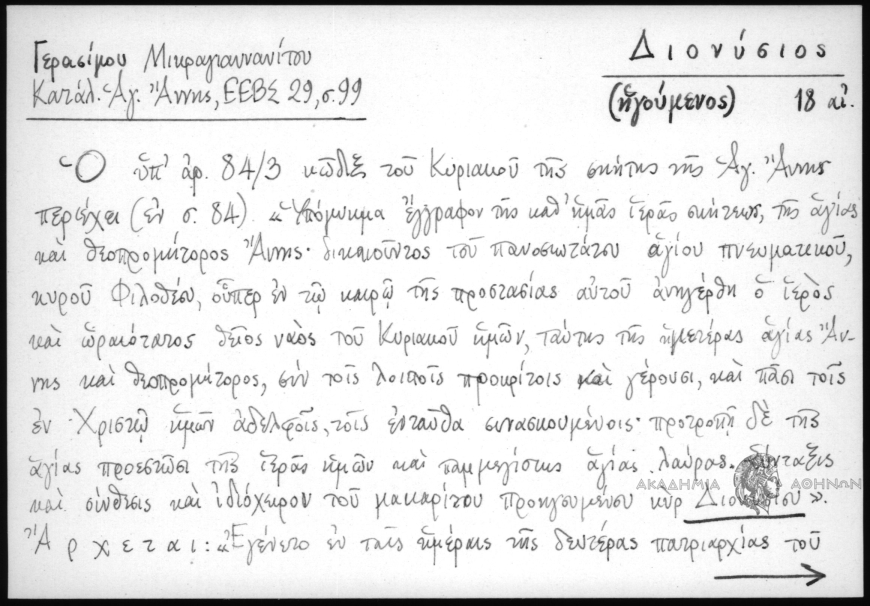 Γερασίμου Μικραγιαννανίτου
Κατάλ. Ἁγ. Ἄννης, ΕΕΒΣ 29, σ. 99
Διονύσιος
(ἡγούμενος) 18 αἰ.
Ὁ ὑπ' ἀρ. 84/3 κῶδιξ τοῦ Κυριακοῦ τῆς σκήτης τῆς Ἁγ. Ἄννης
περιέχει (ἐν σ. 84) «Ὑπόμνημα ἔγγραφον τῆς καθ' ἡμᾶς ἱερᾶς σκήτεως, τῆς ἁγίας
καὶ θεοπρομήτορος Ἄννης· δικαιοῦντος τοῦ πανοσιωτάτου ἁγίου πνευματικοῦ,
κυροῦ Φιλοθέου, οὗπερ ἐν τῷ καιρῷ τῆς προστασίας αὐτοῦ ἀνηγέρθη ὁ ἱερὸς
καὶ ὡραιότατος θεῖος ναὸς τοῦ Κυριακοῦ ἡμῶν, ταύτης τῆς ἡμετέρας ἁγίας Ἄν-
νης καὶ θεοπρομήτορος, σὺν τοῖς λοιποῖς προκρίτοις καὶ γέρουσι, καὶ πᾶσι τοῖς
ἐν Χριστῷ ἡμῶν ἀδελφοῖς, τοῖς ἐνταῦθα συνασκουμένοις· προτροπῇ δὲ τῆς
ἁγίας προεστῶσι τῆς ἱερᾶς ἡμῶν καὶ παμμεγίστης ἁγίας λαύρας. σύνταξις
καὶ σύνθεσις καὶ ἰδιόχειρον τοῦ μακαρίτου προηγουμένου κὺρ Διονυσίου».
ΑΚΑΔΗΜΙΑ ΑΘΗΝΩΝ
Ἄρχεται: «Ἐγένετο ἐν ταῖς ἡμέραις τῆς δευτέρας πατριαρχίας τοῦ